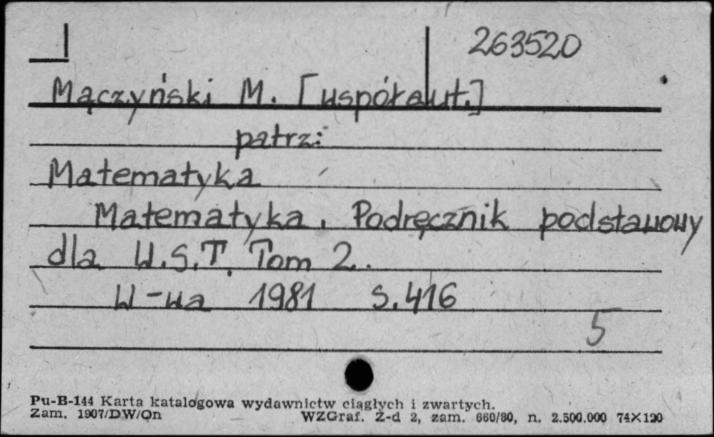 263520
Mączyński M. [współaut.]
patrz:
Matematyka
Matematyka. Podręcznik podstawowy
dla W.S.T. Tom 2.
W-wa 1981 s. 416
5
Pu-B-144 Karta katalogowa wydawnictw ciągłych i zwartych.
Zam. 1907/DW/On WZGraf. Z-d 2, zam. 660/80, n. 2.500.000 74×120